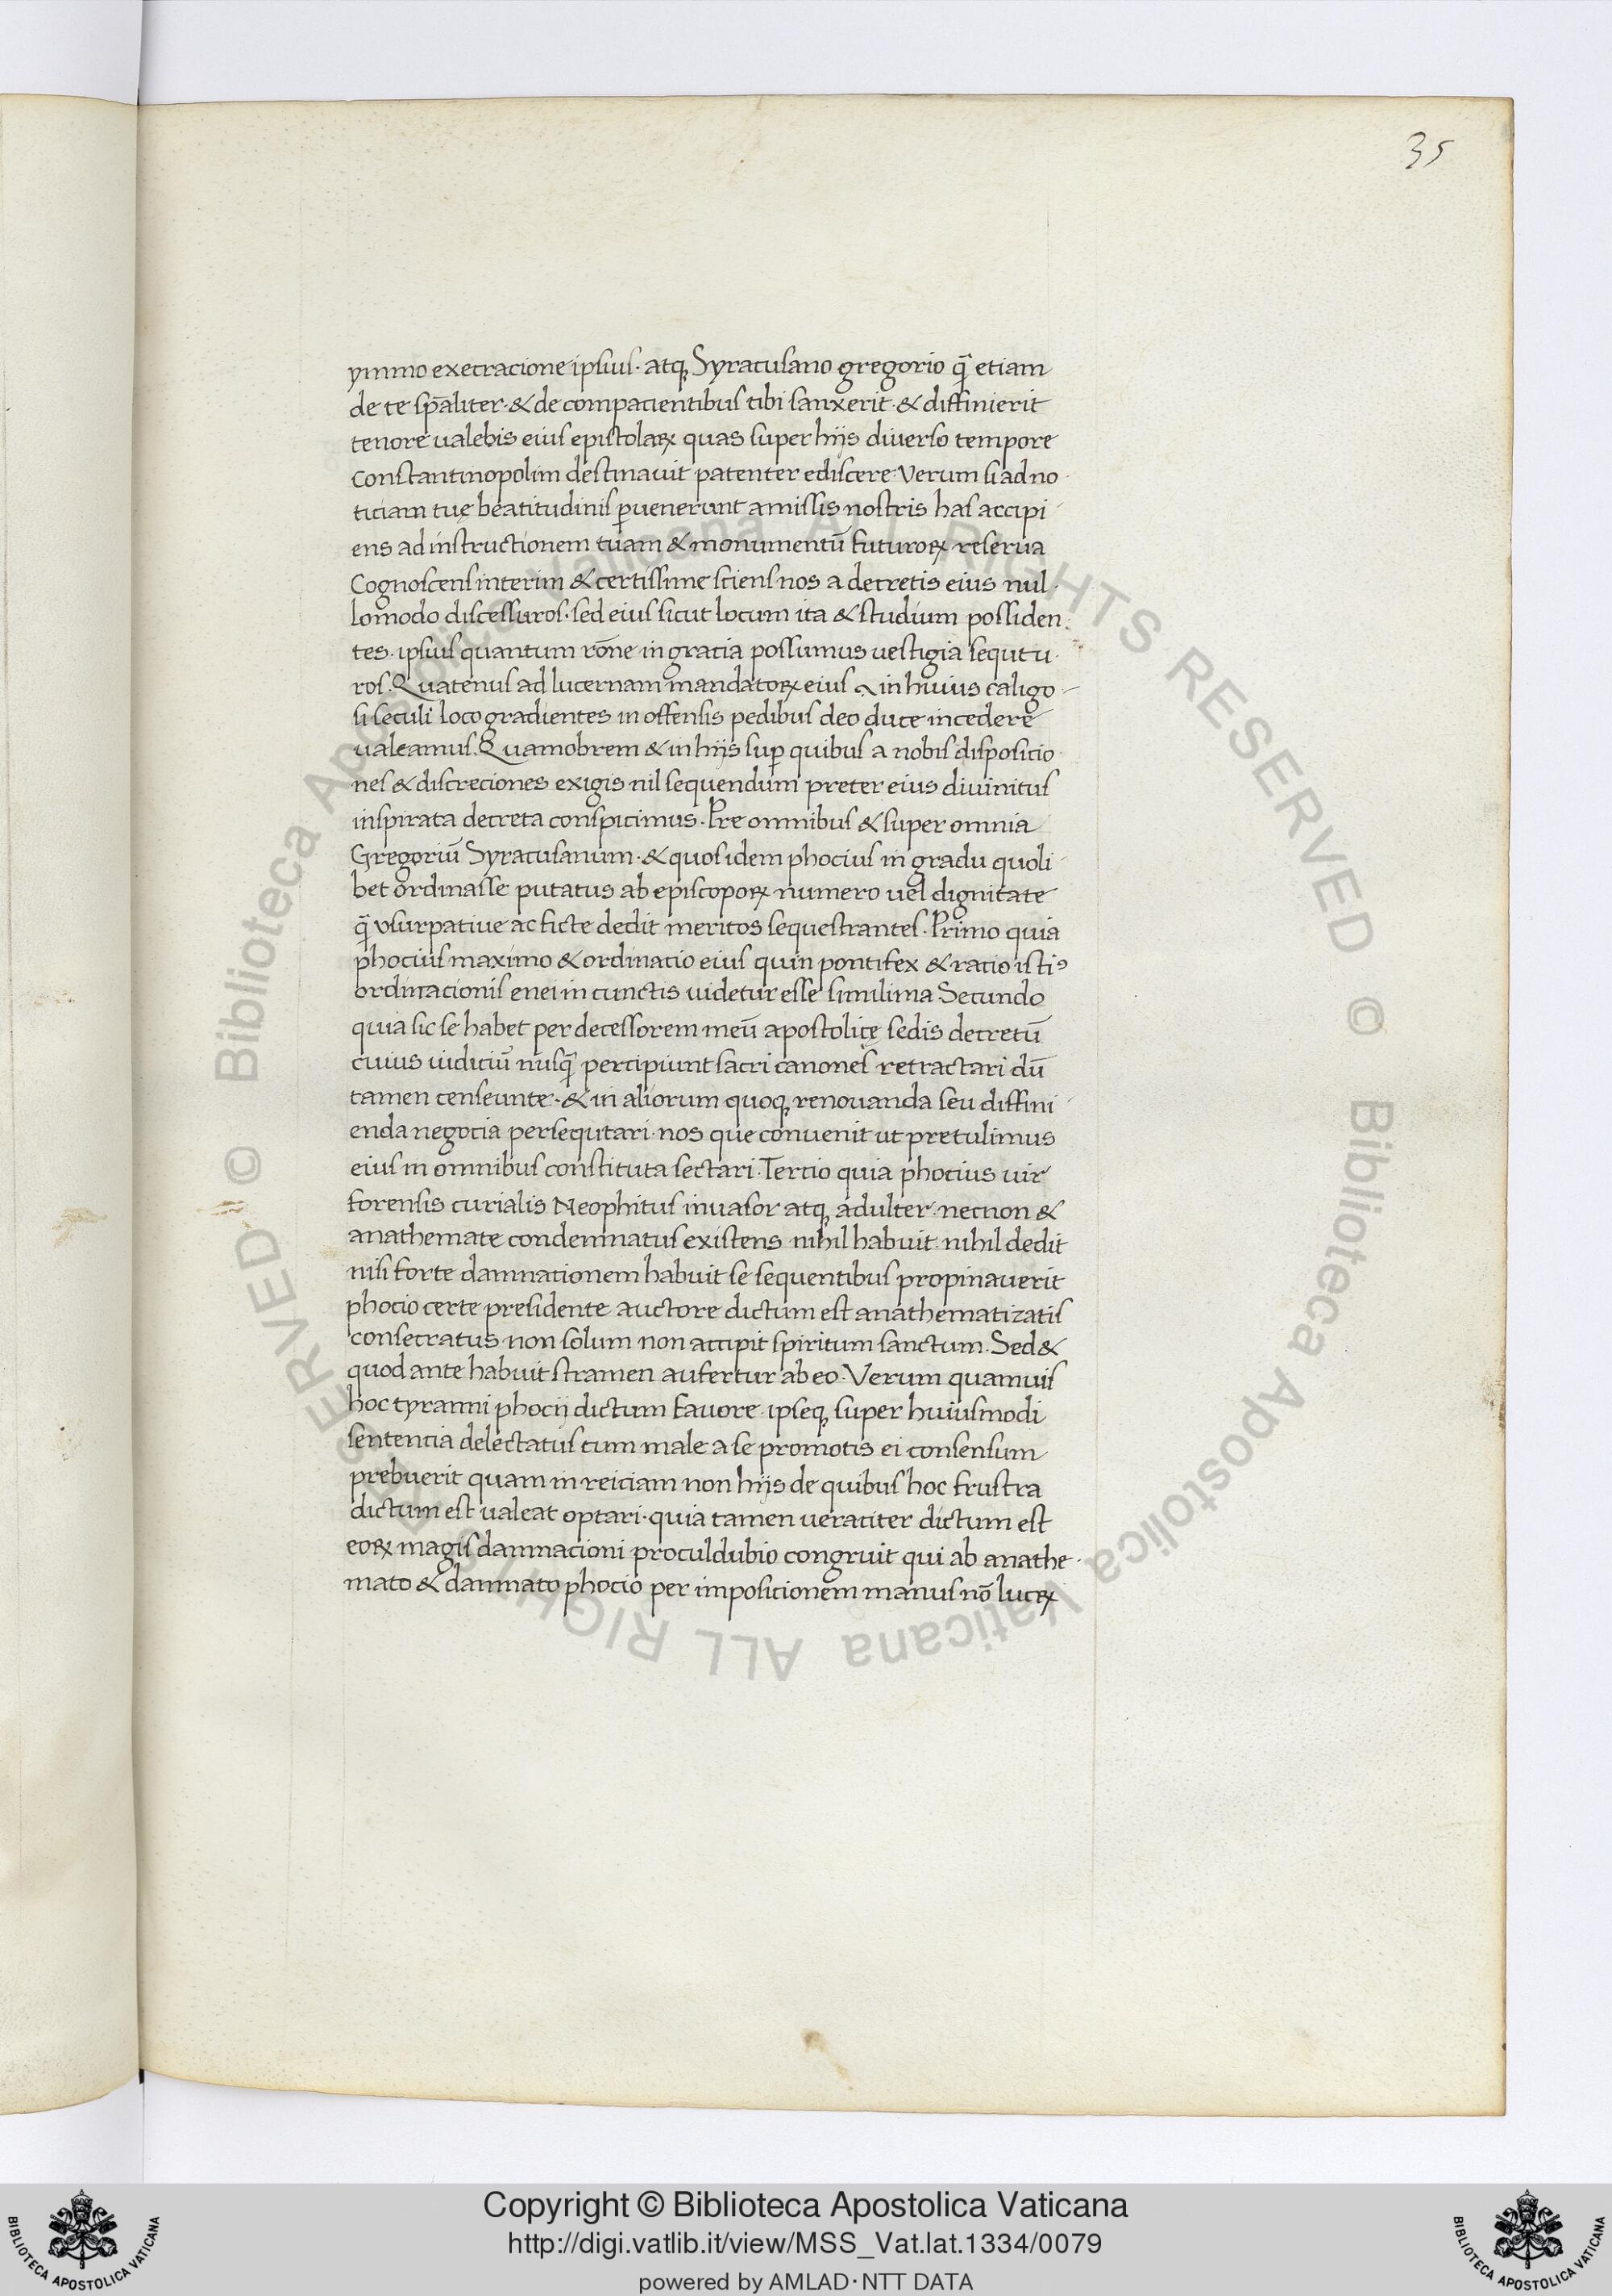 35
ymmo execracione ipsius· atq̨ Syracusano gregorio q̄ etiam
de te sp̄aliter· & de compacientibus tibi sanxerit· & diffinierit
tenore ualebis eius epistolaꝝ quas super hijs diuerso tempore
constantinopolim destinauit patenter ediscere· Verum si ad no·
ticiam tuę beatitudinis ꝑuenerunt a missis nostris has accipi
ens ad instructionem tuam & monumentū futuroꝝ reserua
Cognoscens interim & certissime sciens nos a decretis eius nul·
lomodo discessuros· sed eius sicut locum ita & studium possiden·
tes· ipsius quantum rōne in gratia possumus uestigia sequtu·
ros· Quatenus ad lucernam mandatoꝝ eius in huius caligo
si seculi loco gradientes inoffensis pedibus deo duce incedere
ualeamus· Quamobrem & in hijs suꝑ quibus a nobis disposicio·
nes & discreciones exigis nil sequendum preter eius diuinitus
inspirata decreta conspicimus· Pre omnibus & super omnia
Gregoriū Syracusanum· & quos idem phocius in gradu quoli
bet ordinasse putatus ab episcopoꝝ numero uel dignitate
q̄ vsurpatiue ac ficte dedit meritos sequestrantes· Primo quia
phocius maximo & ordinacio eius quin pontifex & racio isti⁹
ordinacionis enei in cunctis uidetur esse similima Secundo
quia sic se habet per decessorem meū apostolicę sedis decretū
cuius iudiciū nūsq̄ percipiunt sacri canones retractari dū
tamen censeunte· & in aliorum quoq̨ renouanda seu diffini
enda negocia persequtari· nos que conuenit ut pretulimus
eius in omnibus constituta sectari· Tercio quia phocius uir
forensis curialis Neophitus inuasor atq̨ adulter· necnon &
anathemate condemnatus existens nihil habuit· nihil dedit
nisi forte damnacionem habuit se sequentibus propinauerit
phocio certe presidente auctore dictum est anathematizatis
consecratus non solum non accipit spiritum sanctum· Sed &
quod ante habuit stramen aufertur ab eo· Verum quamuis
hoc tyranni phocij dictum fauore· ipseq̨ super huiusmodi
sentencia delectatus cum male a se promotis ei consensum
prebuerit quam in reiciam non hijs de quibus hoc frustra
dictum est ualeat optari· quia tamen ueraciter dictum est
eoꝝ magis damnacioni proculdubio congruit qui ab anathe·
mato & damnato phocio per imposicionem manus nō lucꝝ
© Biblioteca Apostolica Vaticana ALL RIGHTS RESERVED © Biblioteca Apostolica Vaticana ALL RIGHTS RESERVED
BIBLIOTECA APOSTOLICA VATICANA
Copyright © Biblioteca Apostolica Vaticana
http://digi.vatlib.it/view/MSS_Vat.lat.1334/0079
powered by AMLAD·NTT DATA
BIBLIOTECA APOSTOLICA VATICANA